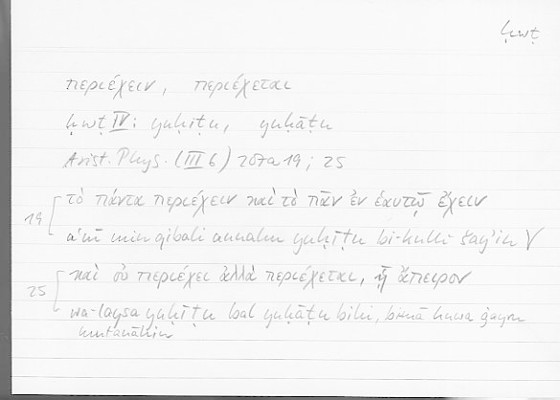 ḥwṭ
περιέχειν, περιέχεται
ḥwṭ IV: yuḥīṭu, yuḥāṭu
Arist. Phys. (III 6) 207a19; 25
19 τὸ πάντα περιέχειν καὶ τὸ πᾶν ἐν ἑαυτῷ ἔχειν
aʿnī min qibali annahu yuḥīṭu bi-kulli šayʾin
25 καὶ οὐ περιέχει ἀλλὰ περιέχεται, ᾗ ἄπειρον
wa-laysa yuḥīṭu bal yuḥāṭu bihi, bimā huwa ġayru
mutanāhin